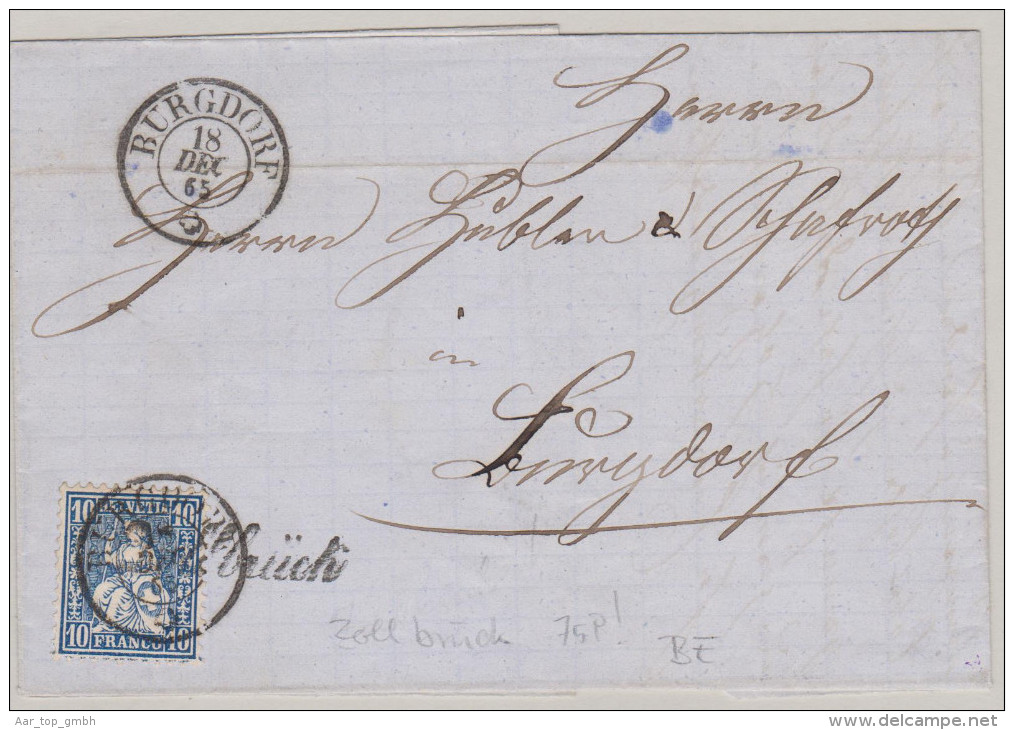 Herrn
BURGDORF
18
DEC
65
Herrn Hübler & Schafroth
in
Burgdorf
10 HELVETIA 10
10 FRANCO 10
Zollbrück
Zollbrück 75P!
BE
Aar_top_gmbh
www.delcampe.net